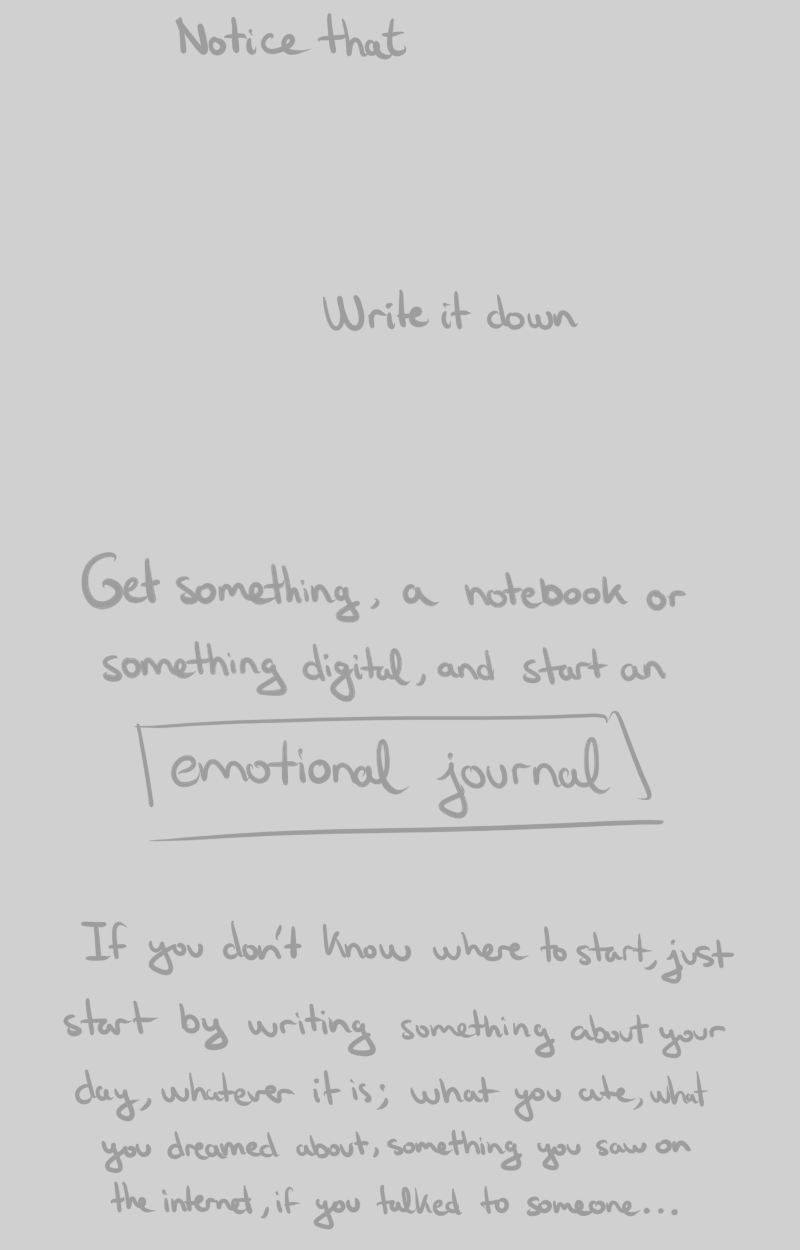 Notice that
Write it down
Get something, a notebook or
something digital, and start an
emotional journal
If you don't know where to start, just
start by writing something about your
day, whatever it is; what you ate, what
you dreamed about, something you saw on
the internet, if you talked to someone...